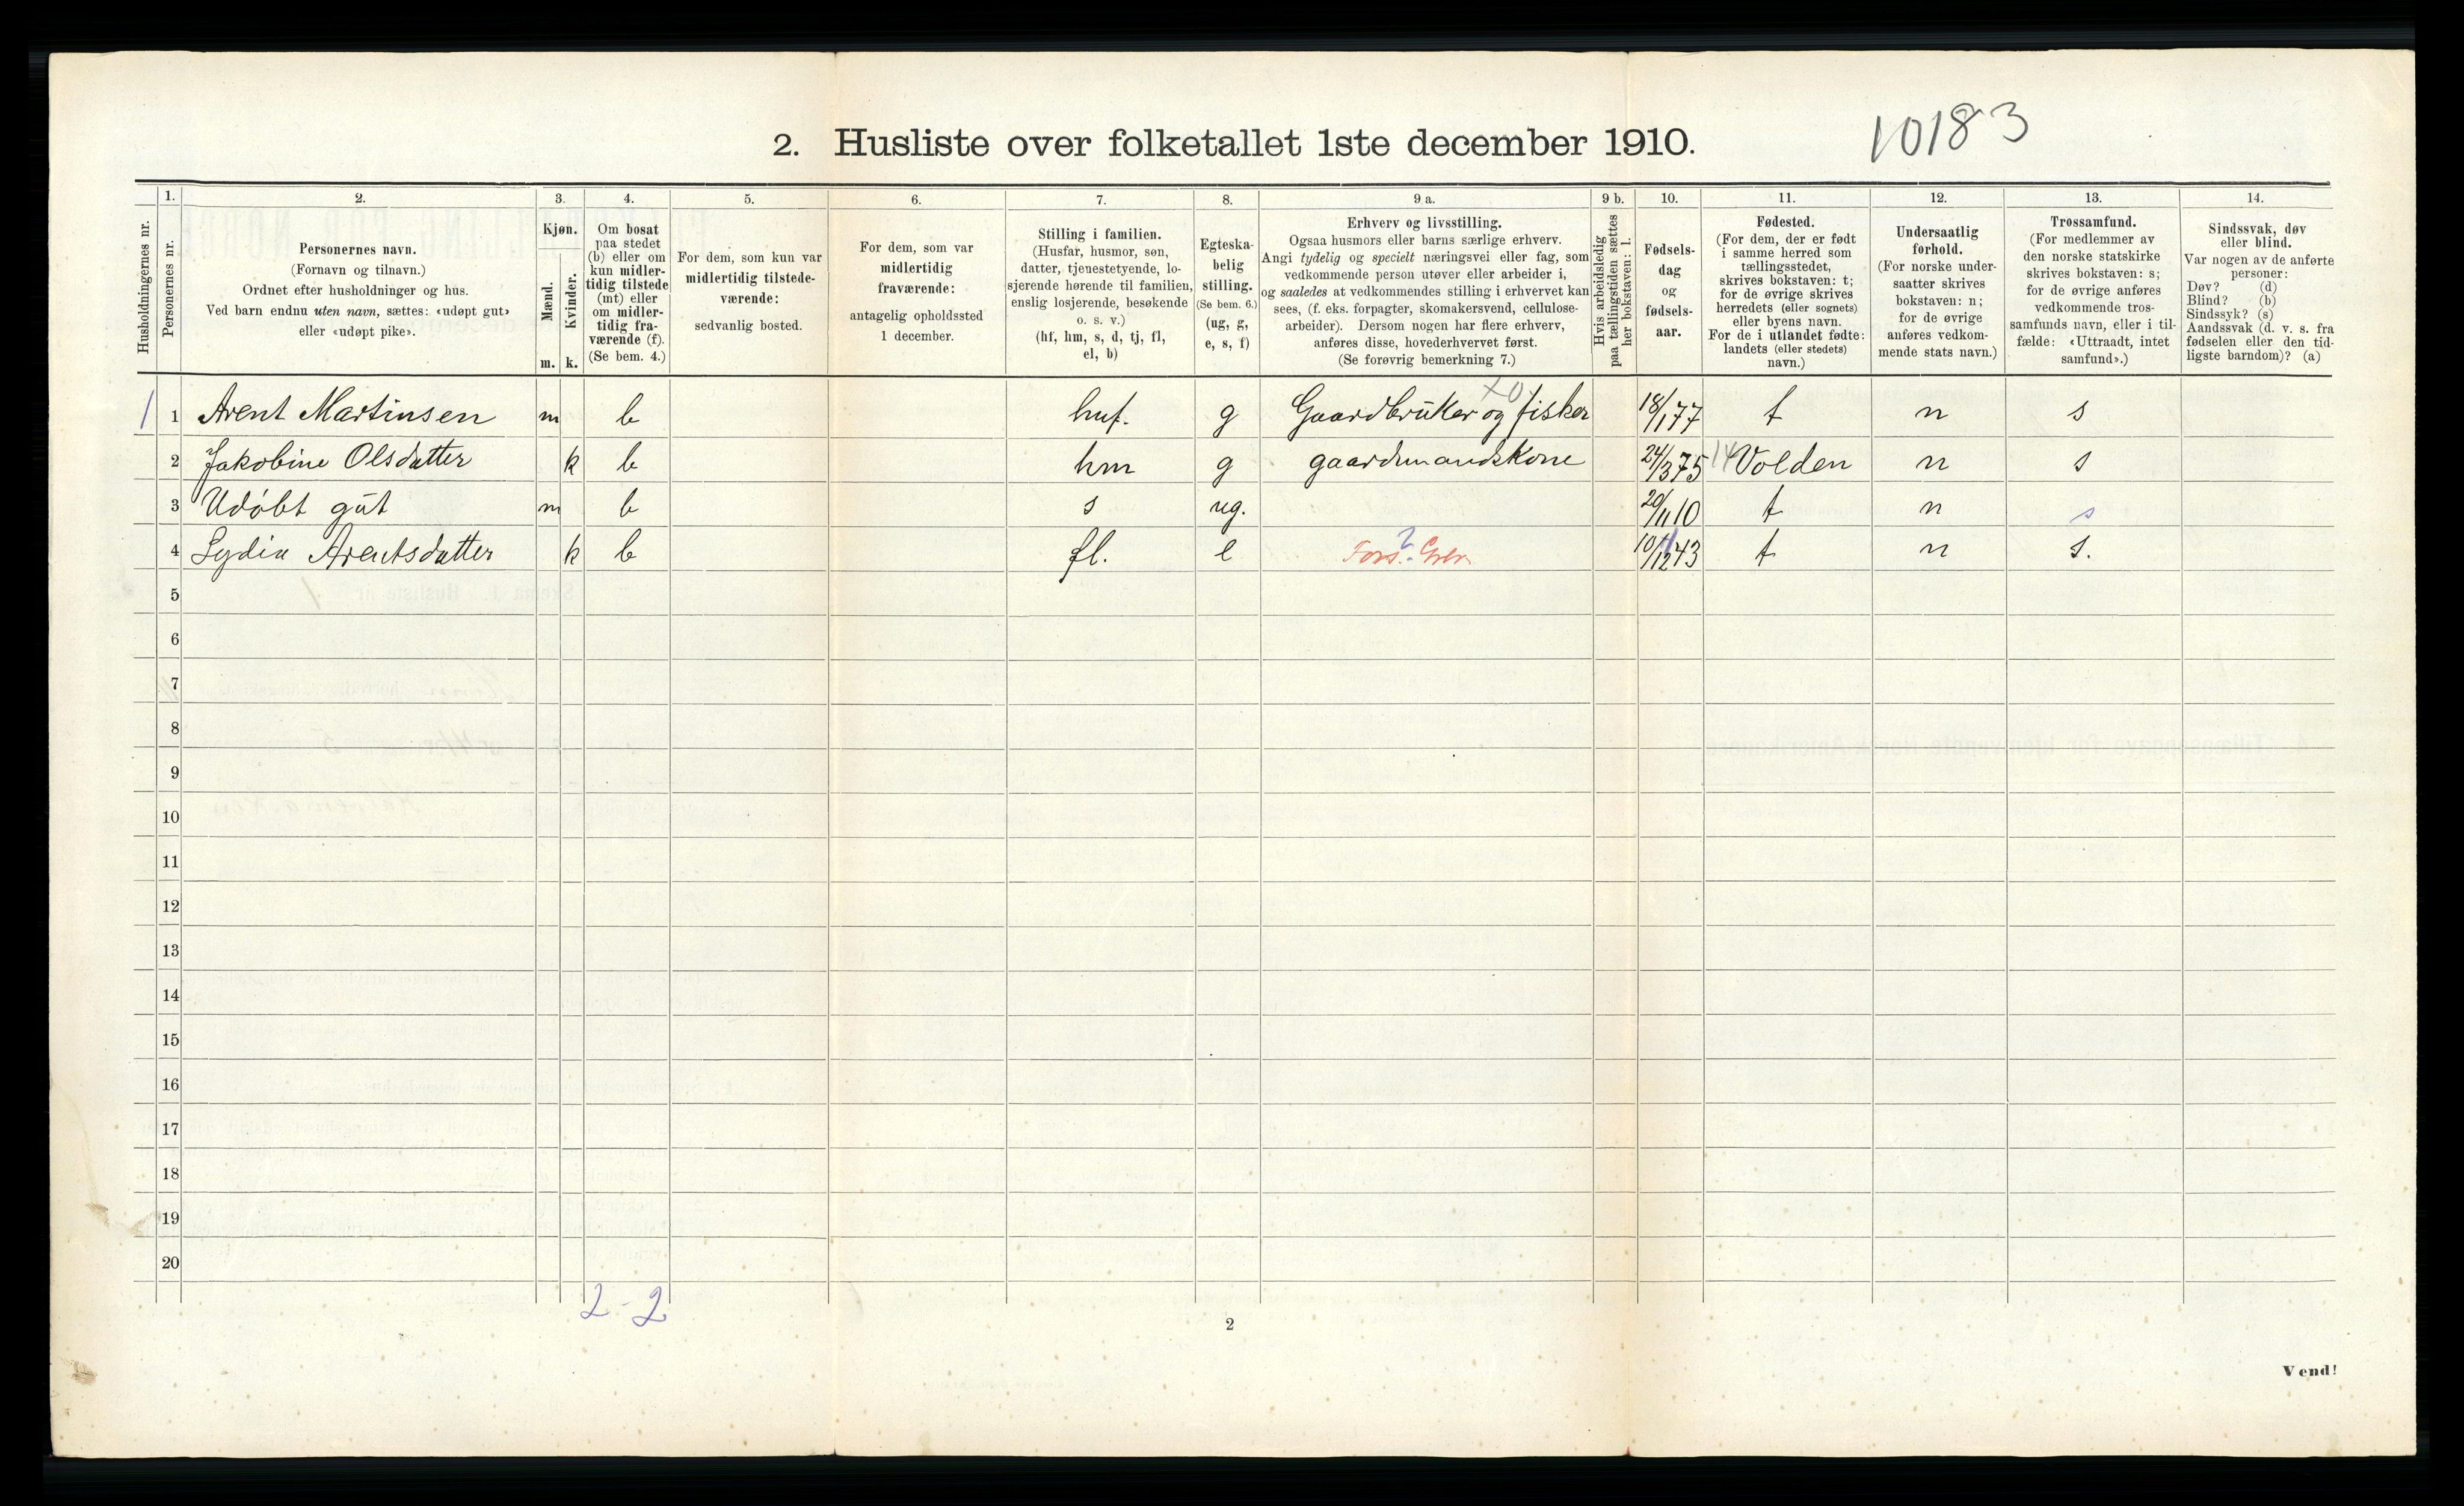 2. Husliste over folketallet 1ste december 1910.
10183
Husholdningernes nr.
1.
Personernes nr.
2.
Personernes navn.
(Fornavn og tilnavn.)
Ordnet efter husholdninger og hus.
Ved barn endnu uten navn, sættes: «udøpt gut»
eller «udøpt pike».
3.
Kjøn.
Mænd.
Kvinder.
m. k.
4.
Om bosat
paa stedet
(b) eller om
kun midler-
tidig tilstede
(mt) eller
om midler-
tidig fra-
værende (f).
(Se bem. 4.)
5.
For dem, som kun var
midlertidig tilstede-
værende:
sedvanlig bosted.
6.
For dem, som var
midlertidig
fraværende:
antagelig opholdssted
1 december.
7.
Stilling i familien.
(Husfar, husmor, søn,
datter, tjenestetyende, lo-
sjerende hørende til familien,
enslig losjerende, besøkende
o. s. v.)
(hf, hm, s, d, tj, fl,
el, b)
8.
Egteska-
belig
stilling.
(Se bem. 6.)
(ug, g,
e, s, f)
9 a.
Erhverv og livsstilling.
Ogsaa husmors eller barns særlige erhverv.
Angi tydelig og specielt næringsvei eller fag, som
vedkommende person utøver eller arbeider i,
og saaledes at vedkommendes stilling i erhvervet kan
sees, (f. eks. forpagter, skomakersvend, cellulose-
arbeider). Dersom nogen har flere erhverv,
anføres disse, hovederhvervet først.
(Se forøvrig bemerkning 7.)
9 b.
Hvis arbeidsledig
paa tællingstiden sættes
her bokstaven: l.
10.
Fødsels-
dag
og
fødsels-
aar.
11.
Fødested.
(For dem, der er født
i samme herred som
tællingsstedet,
skrives bokstaven: t;
for de øvrige skrives
herredets (eller sognets)
eller byens navn.
For de i utlandet fødte:
landets (eller stedets)
navn.)
12.
Undersaatlig
forhold.
(For norske under-
saatter skrives
bokstaven: n;
for de øvrige
anføres vedkom-
mende stats navn.)
13.
Trossamfund.
(For medlemmer av
den norske statskirke
skrives bokstaven: s;
for de øvrige anføres
vedkommende tros-
samfunds navn, eller i til-
fælde: «Uttraadt, intet
samfund».)
14.
Sindssvak, døv
eller blind.
Var nogen av de anførte
personer:
Døv? (d)
Blind? (b)
Sindssyk? (s)
Aandssvak (d. v. s. fra
fødselen eller den tid-
ligste barndom)? (a)
1 1 Arent Martinsen m b huf. g Gaardbruker og fisker 18/1 77 t n s
2 Jakobine Olsdatter k b hm g gaardmandskone 24/3 75 14 Volden n s
3 Udøbt gut m b s ug. 20/11 10 t n s
4 Lydia Arentsdatter k b fl. e Fors. 10/12 43 t n s.
5
6
7
8
9
10
11
12
13
14
15
16
17
18
19
20
2 - 2
2
Vend!